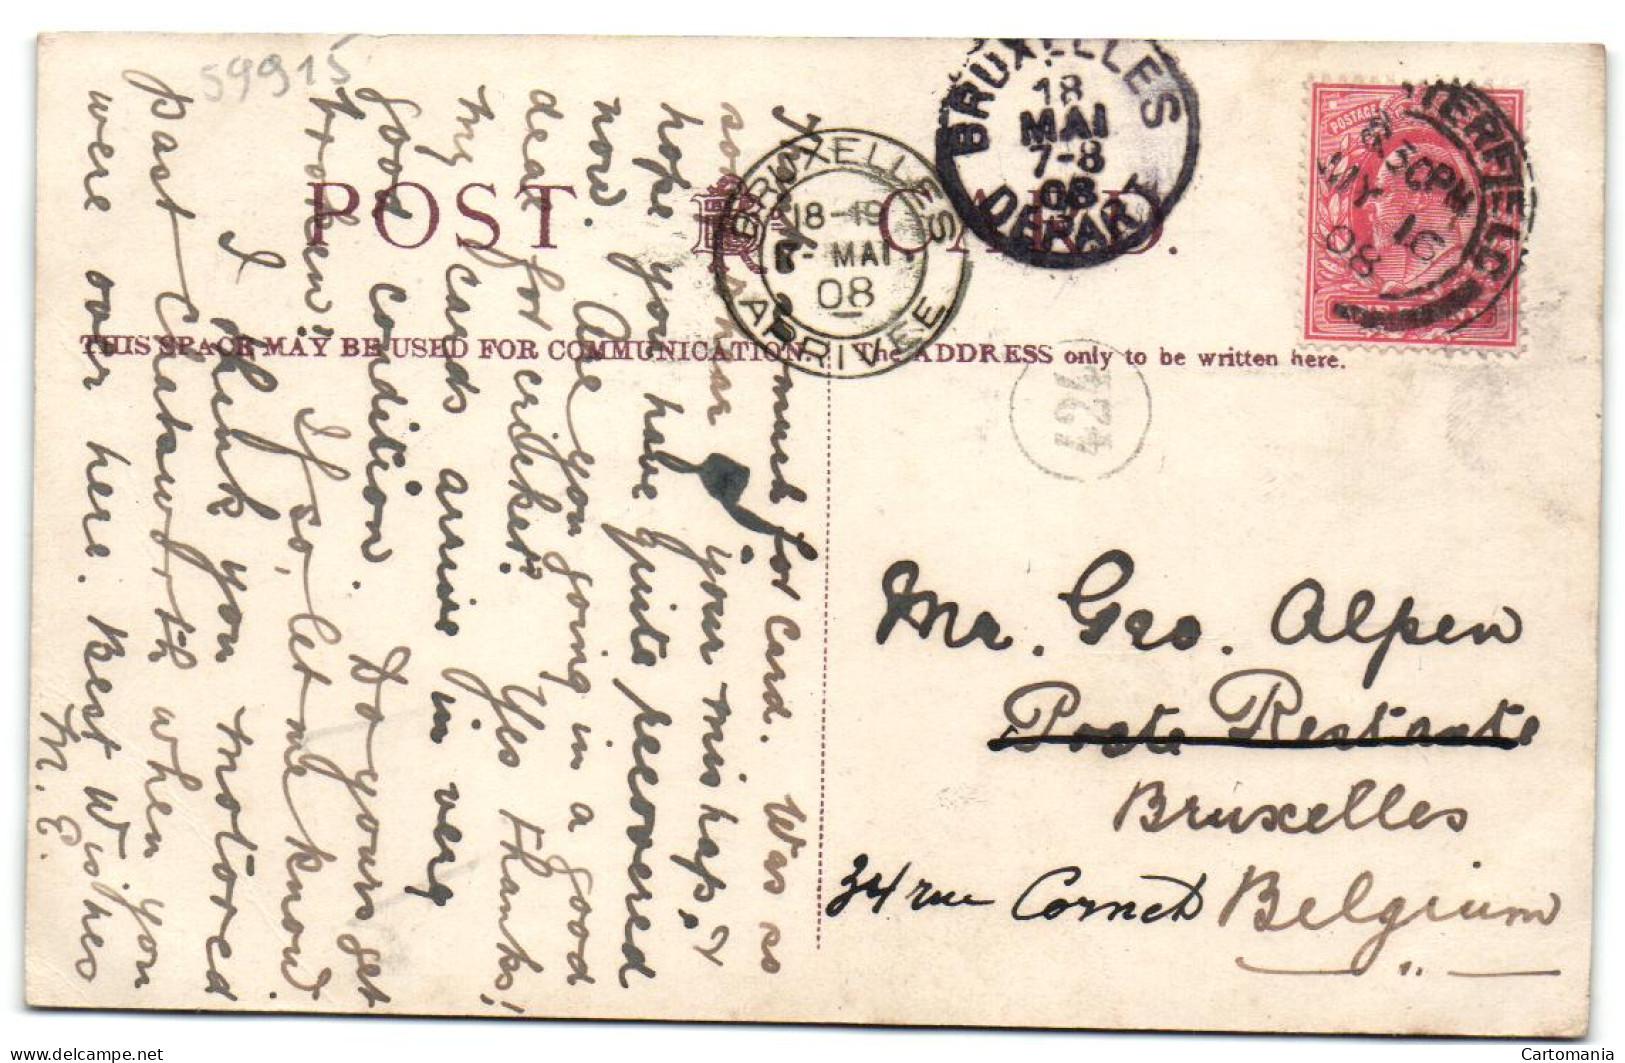 59915
POST CARD.
THIS SPACE MAY BE USED FOR COMMUNICATION.
The ADDRESS only to be written here.
BRUXELLES
18-19
7- MAI
08
ARRIVEE
BRUXELLES
18
MAI
7-8
08
DEPART
TERFIELD
30 PM
MY 16
08
POSTAGE
424
much for card. Was so
your mishap, &
hope you have quite recovered
now. Are you going in a good
deal for cricket? Yes thanks!
My cards arrive in very
good condition. Do yours get
broken,
If so, let me know.
I think you motored
past Chatsworth when you
were over here. Best Wishes
M. E.
Mr. Geo. Alpen
Poste Restante
Bruxelles
34 rue Cornet Belgium
www.delcampe.net
Cartomania